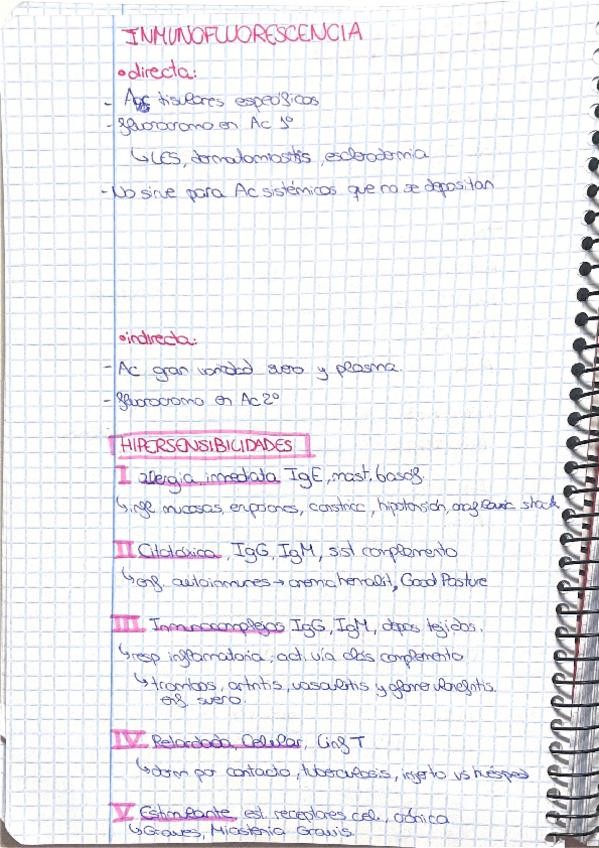 INMUNOFLUORESCENCIA
• directa:
- Ac tisulares específicos
- fluorocromo en Ac 1º
↳ LES, dermatomiositis, esclerodermia
- No sirve para Ac sistémicos que no se depositan
• indirecta:
- Ac gran variedad suero y plasma.
- fluorocromo en Ac 2º
HIPERSENSIBILIDADES
I alergia inmediata IgE, mast. basóf.
↳ infl mucosas, erupciones, constricc, hipotensión, shock
II Citotóxica, IgG, IgM, sist complemento
↳ enf. autoinmunes → anemia hemolít, Good Pasture
III Inmunocomplejos IgG, IgM, depos tejidos.
↳ resp inflamatoria, act. vía clás complemento
↳ trombos, artritis, vasculitis y glomerulonefritis.
enf. suero.
IV Retardada, Celular, Linf T
↳ derm por contacto, tuberculosis, injerto vs huésped
V Estimulante, est. receptores cel., crónica
↳ Graves, Miastenia Gravis.